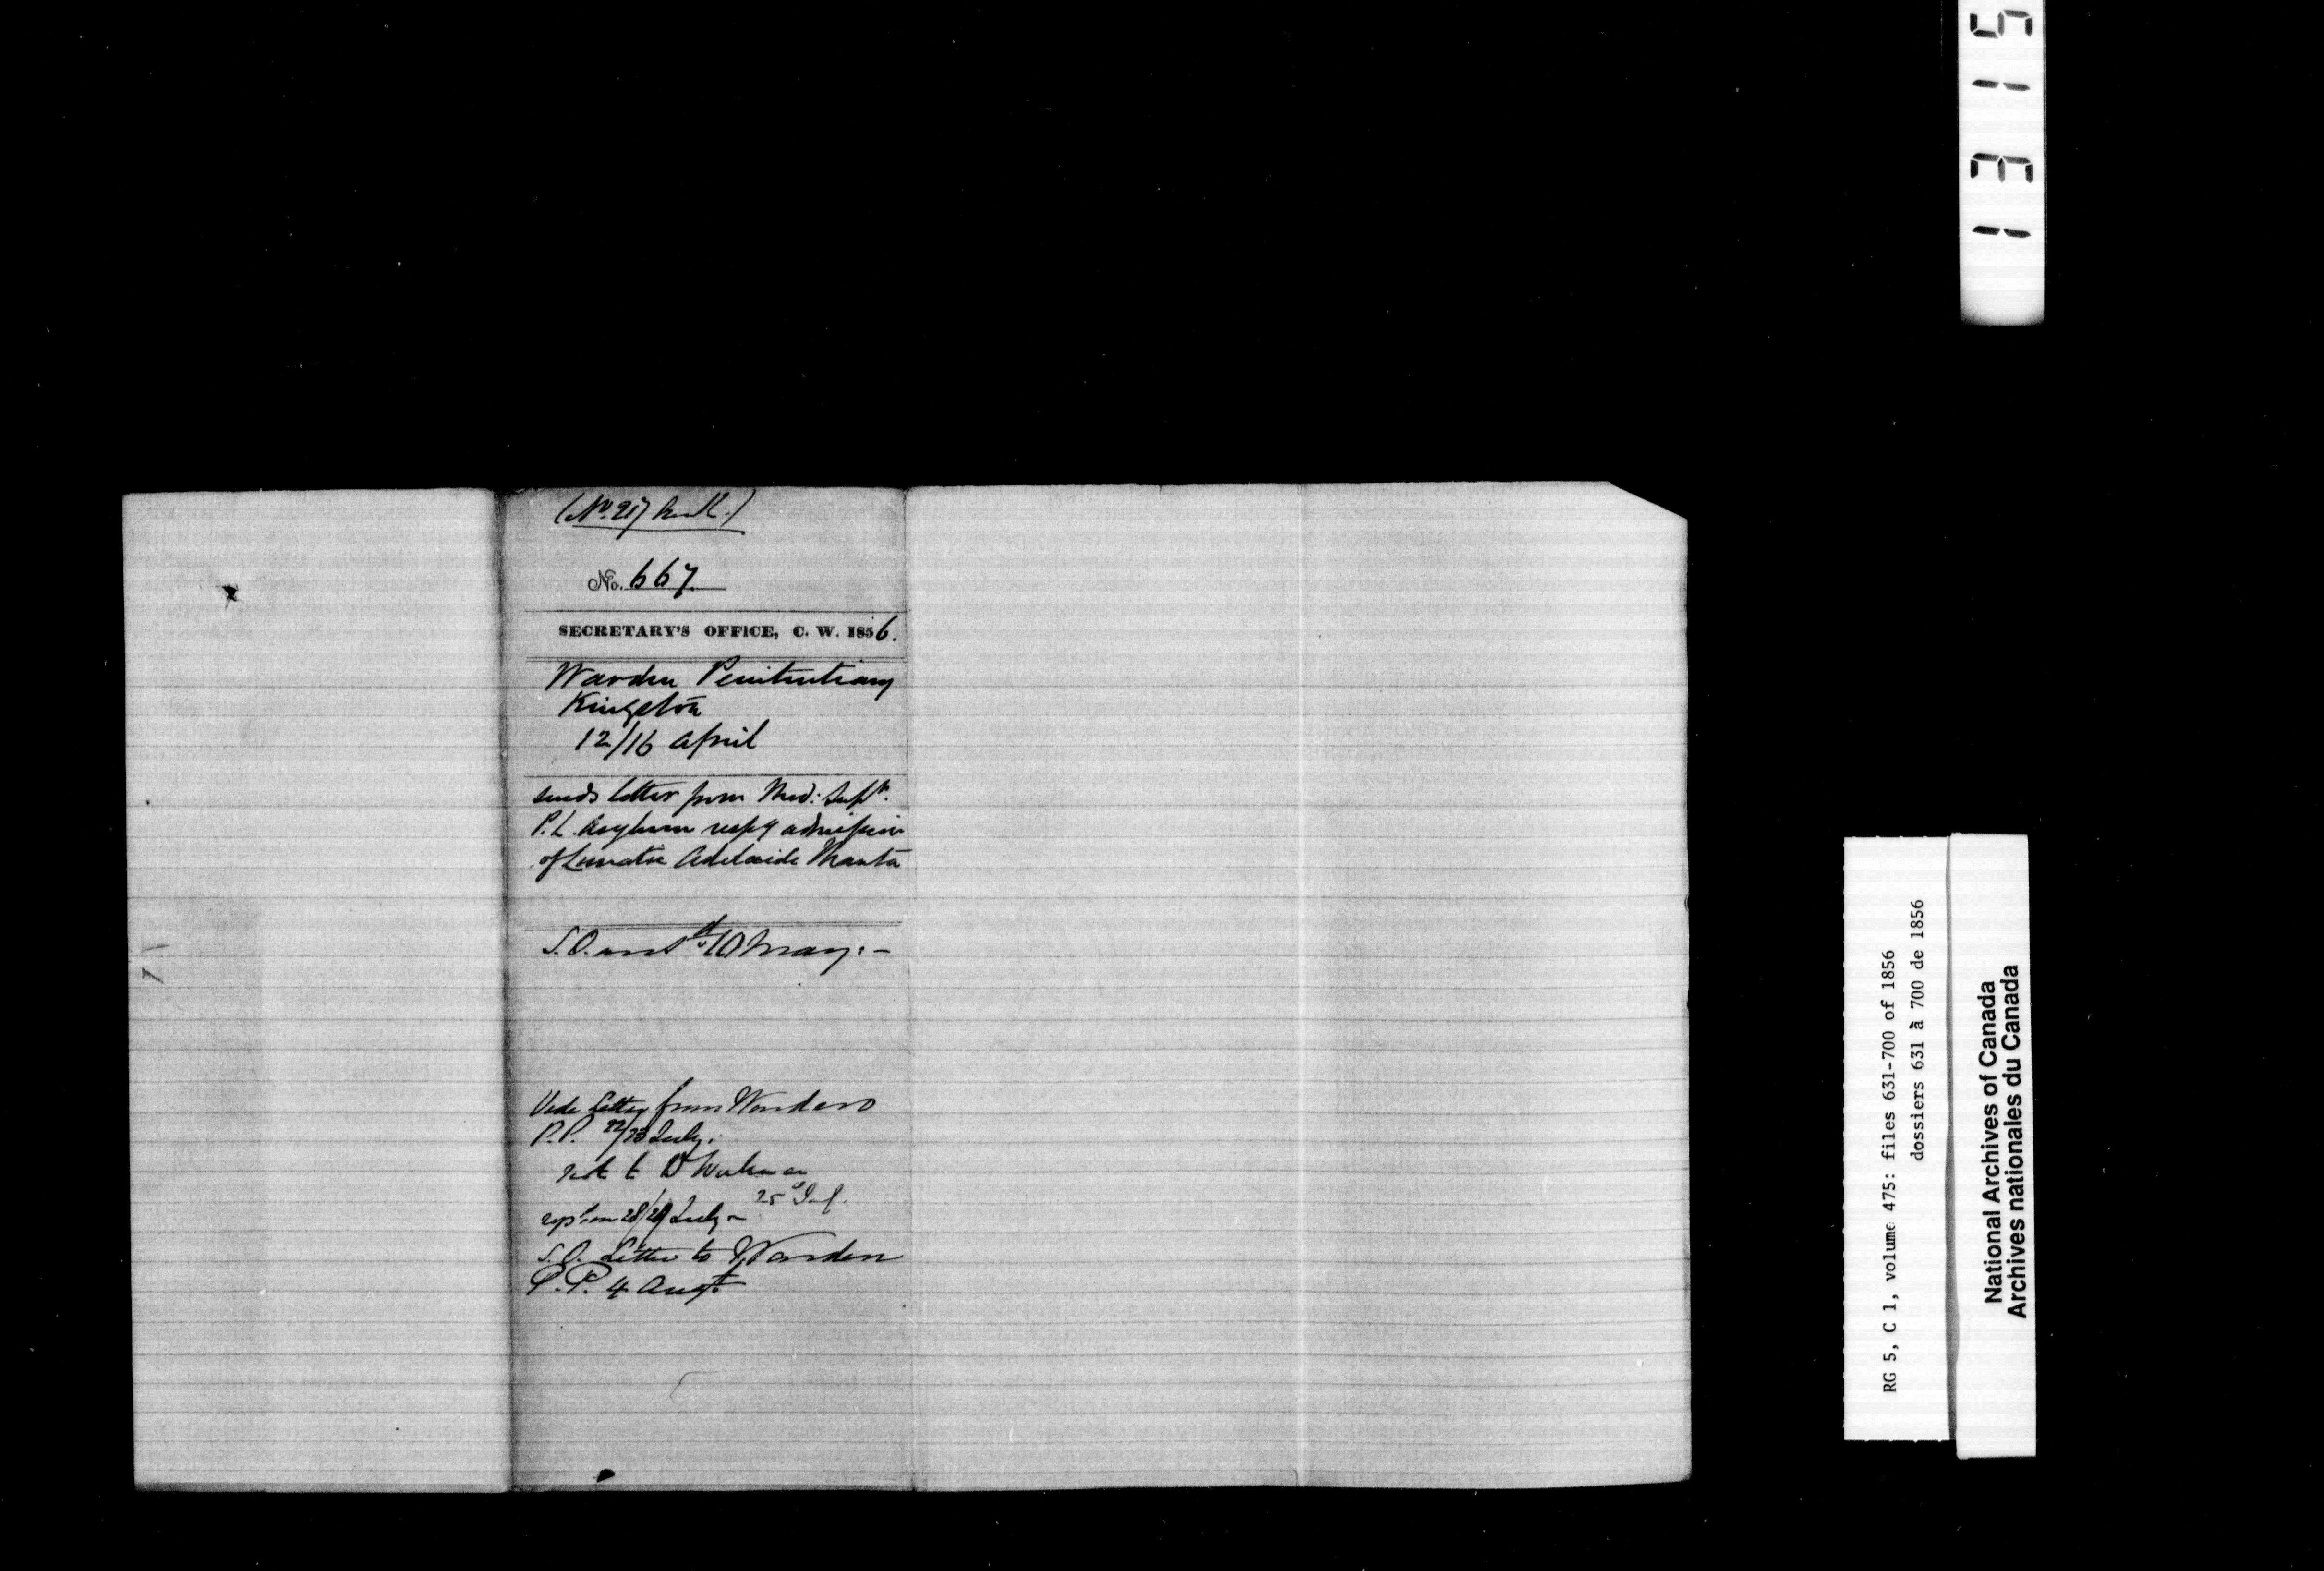 1315
No. 667.
SECRETARY'S OFFICE, C. W. 1856.
Warden Penitentiary
Kingston
12/16 April
sends letter from Med: Supt.
P. L. Asylum respg admission
of Lunatic Adelaide
S.O. 10 May:-
Vide letter from Warden
P.P. 22/23 July.
to Dr Workman
28/29 July
S.O. Letter to Warden
P.P. 4 Augt
RG 5, C 1, volume 475: files 631-700 of 1856
dossiers 631 à 700 de 1856
National Archives of Canada
Archives nationales du Canada